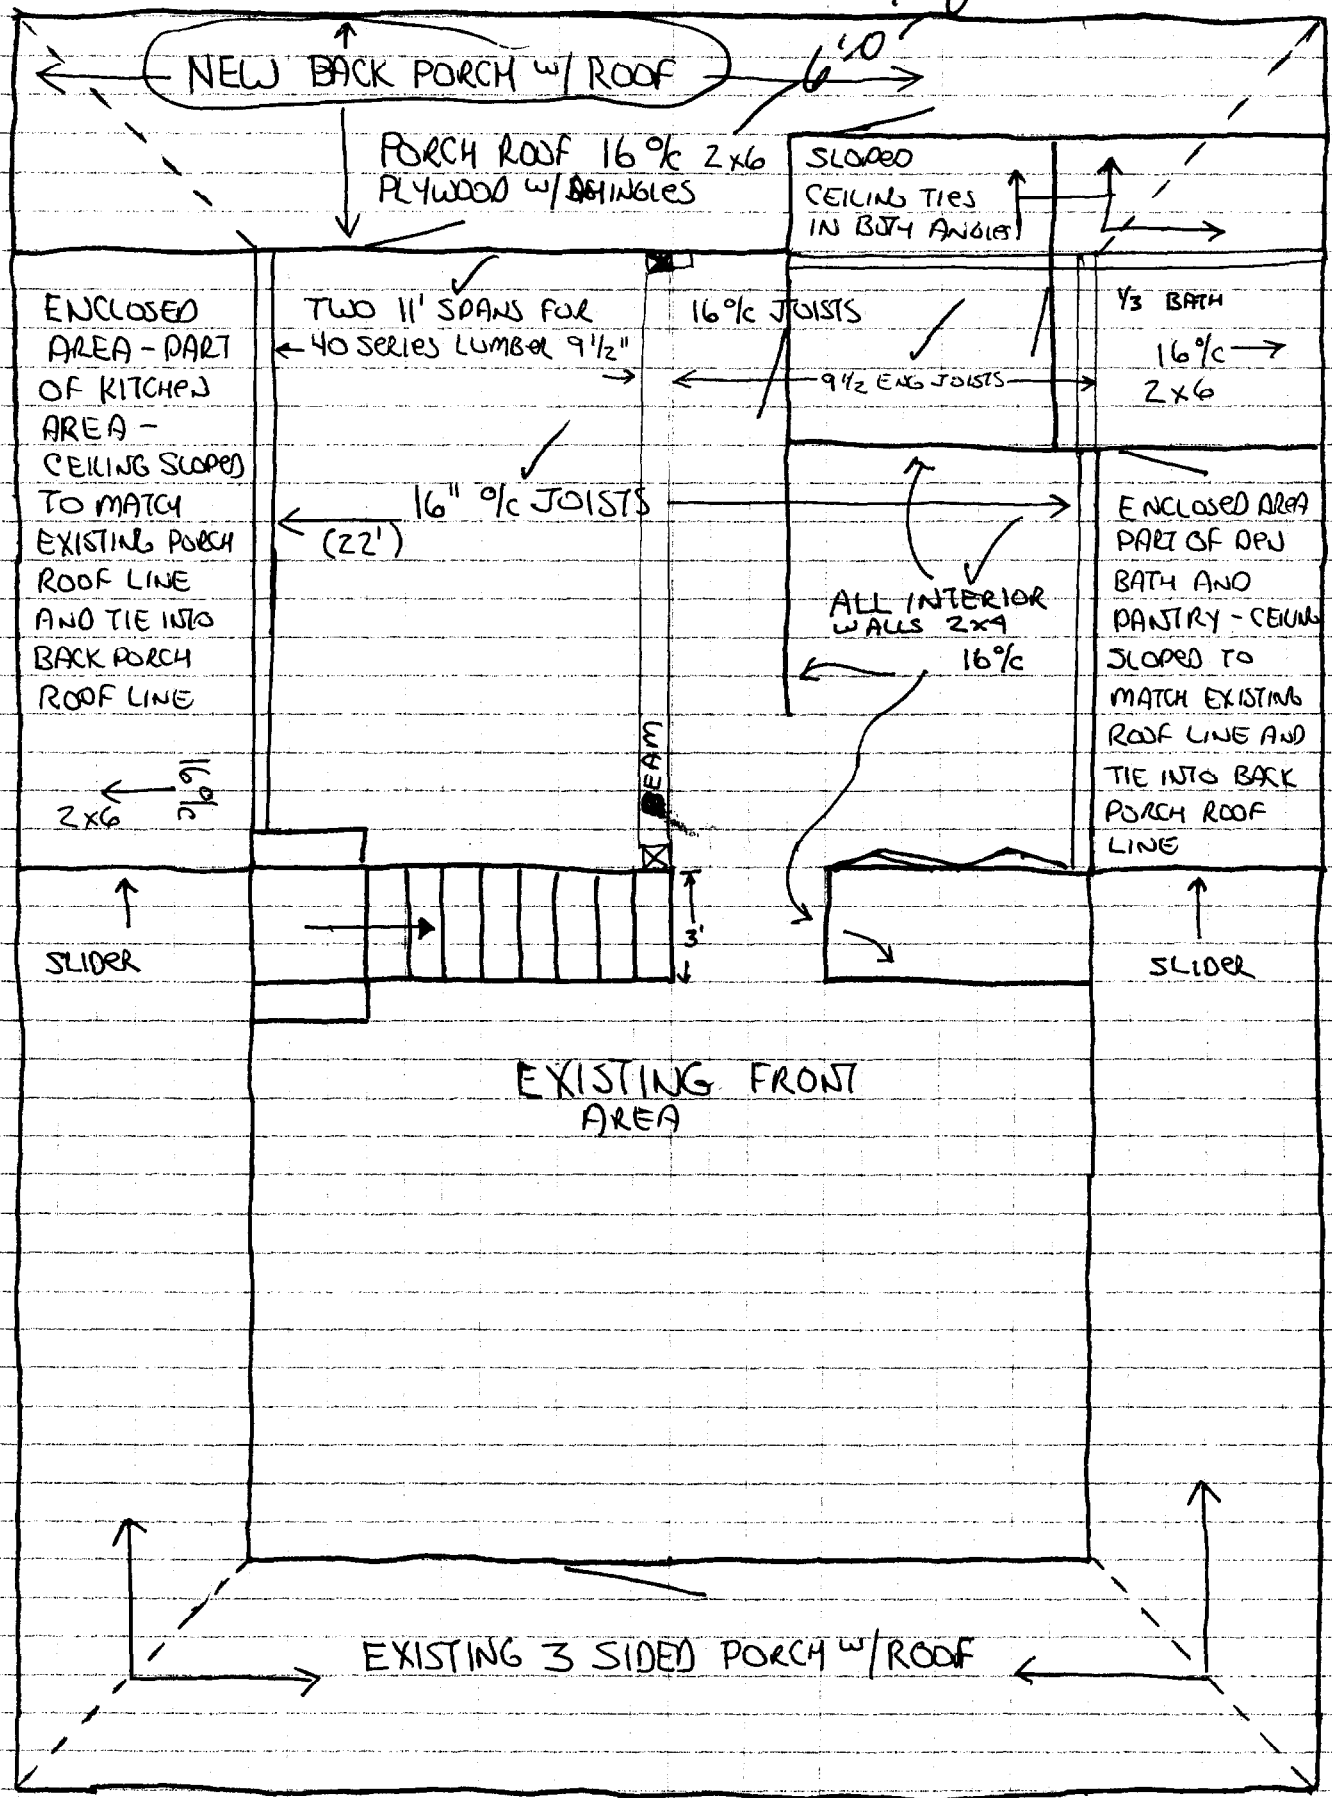 6'0"
NEW BACK PORCH w/ ROOF
PORCH ROOF 16 o/c 2x6
PLYWOOD w/ SHINGLES
SLOPED
CEILING TIES
IN BOTH ANGLES
ENCLOSED
AREA - PART
OF KITCHEN
AREA -
CEILING SLOPED
TO MATCH
EXISTING PORCH
ROOF LINE
AND TIE INTO
BACK PORCH
ROOF LINE
16 o/c
2x6
TWO 11' SPANS FOR
40 SERIES LUMBER 9 1/2"
16 o/c JOISTS
9 1/2 ENG JOISTS
1/3 BATH
16 o/c
2x6
16" o/c JOISTS
(22')
BEAM
ALL INTERIOR
WALLS 2x4
16 o/c
ENCLOSED AREA
PART OF DEN
BATH AND
PANTRY - CEILING
SLOPED TO
MATCH EXISTING
ROOF LINE AND
TIE INTO BACK
PORCH ROOF
LINE
SLIDER
3'
SLIDER
EXISTING FRONT
AREA
EXISTING 3 SIDED PORCH w/ROOF